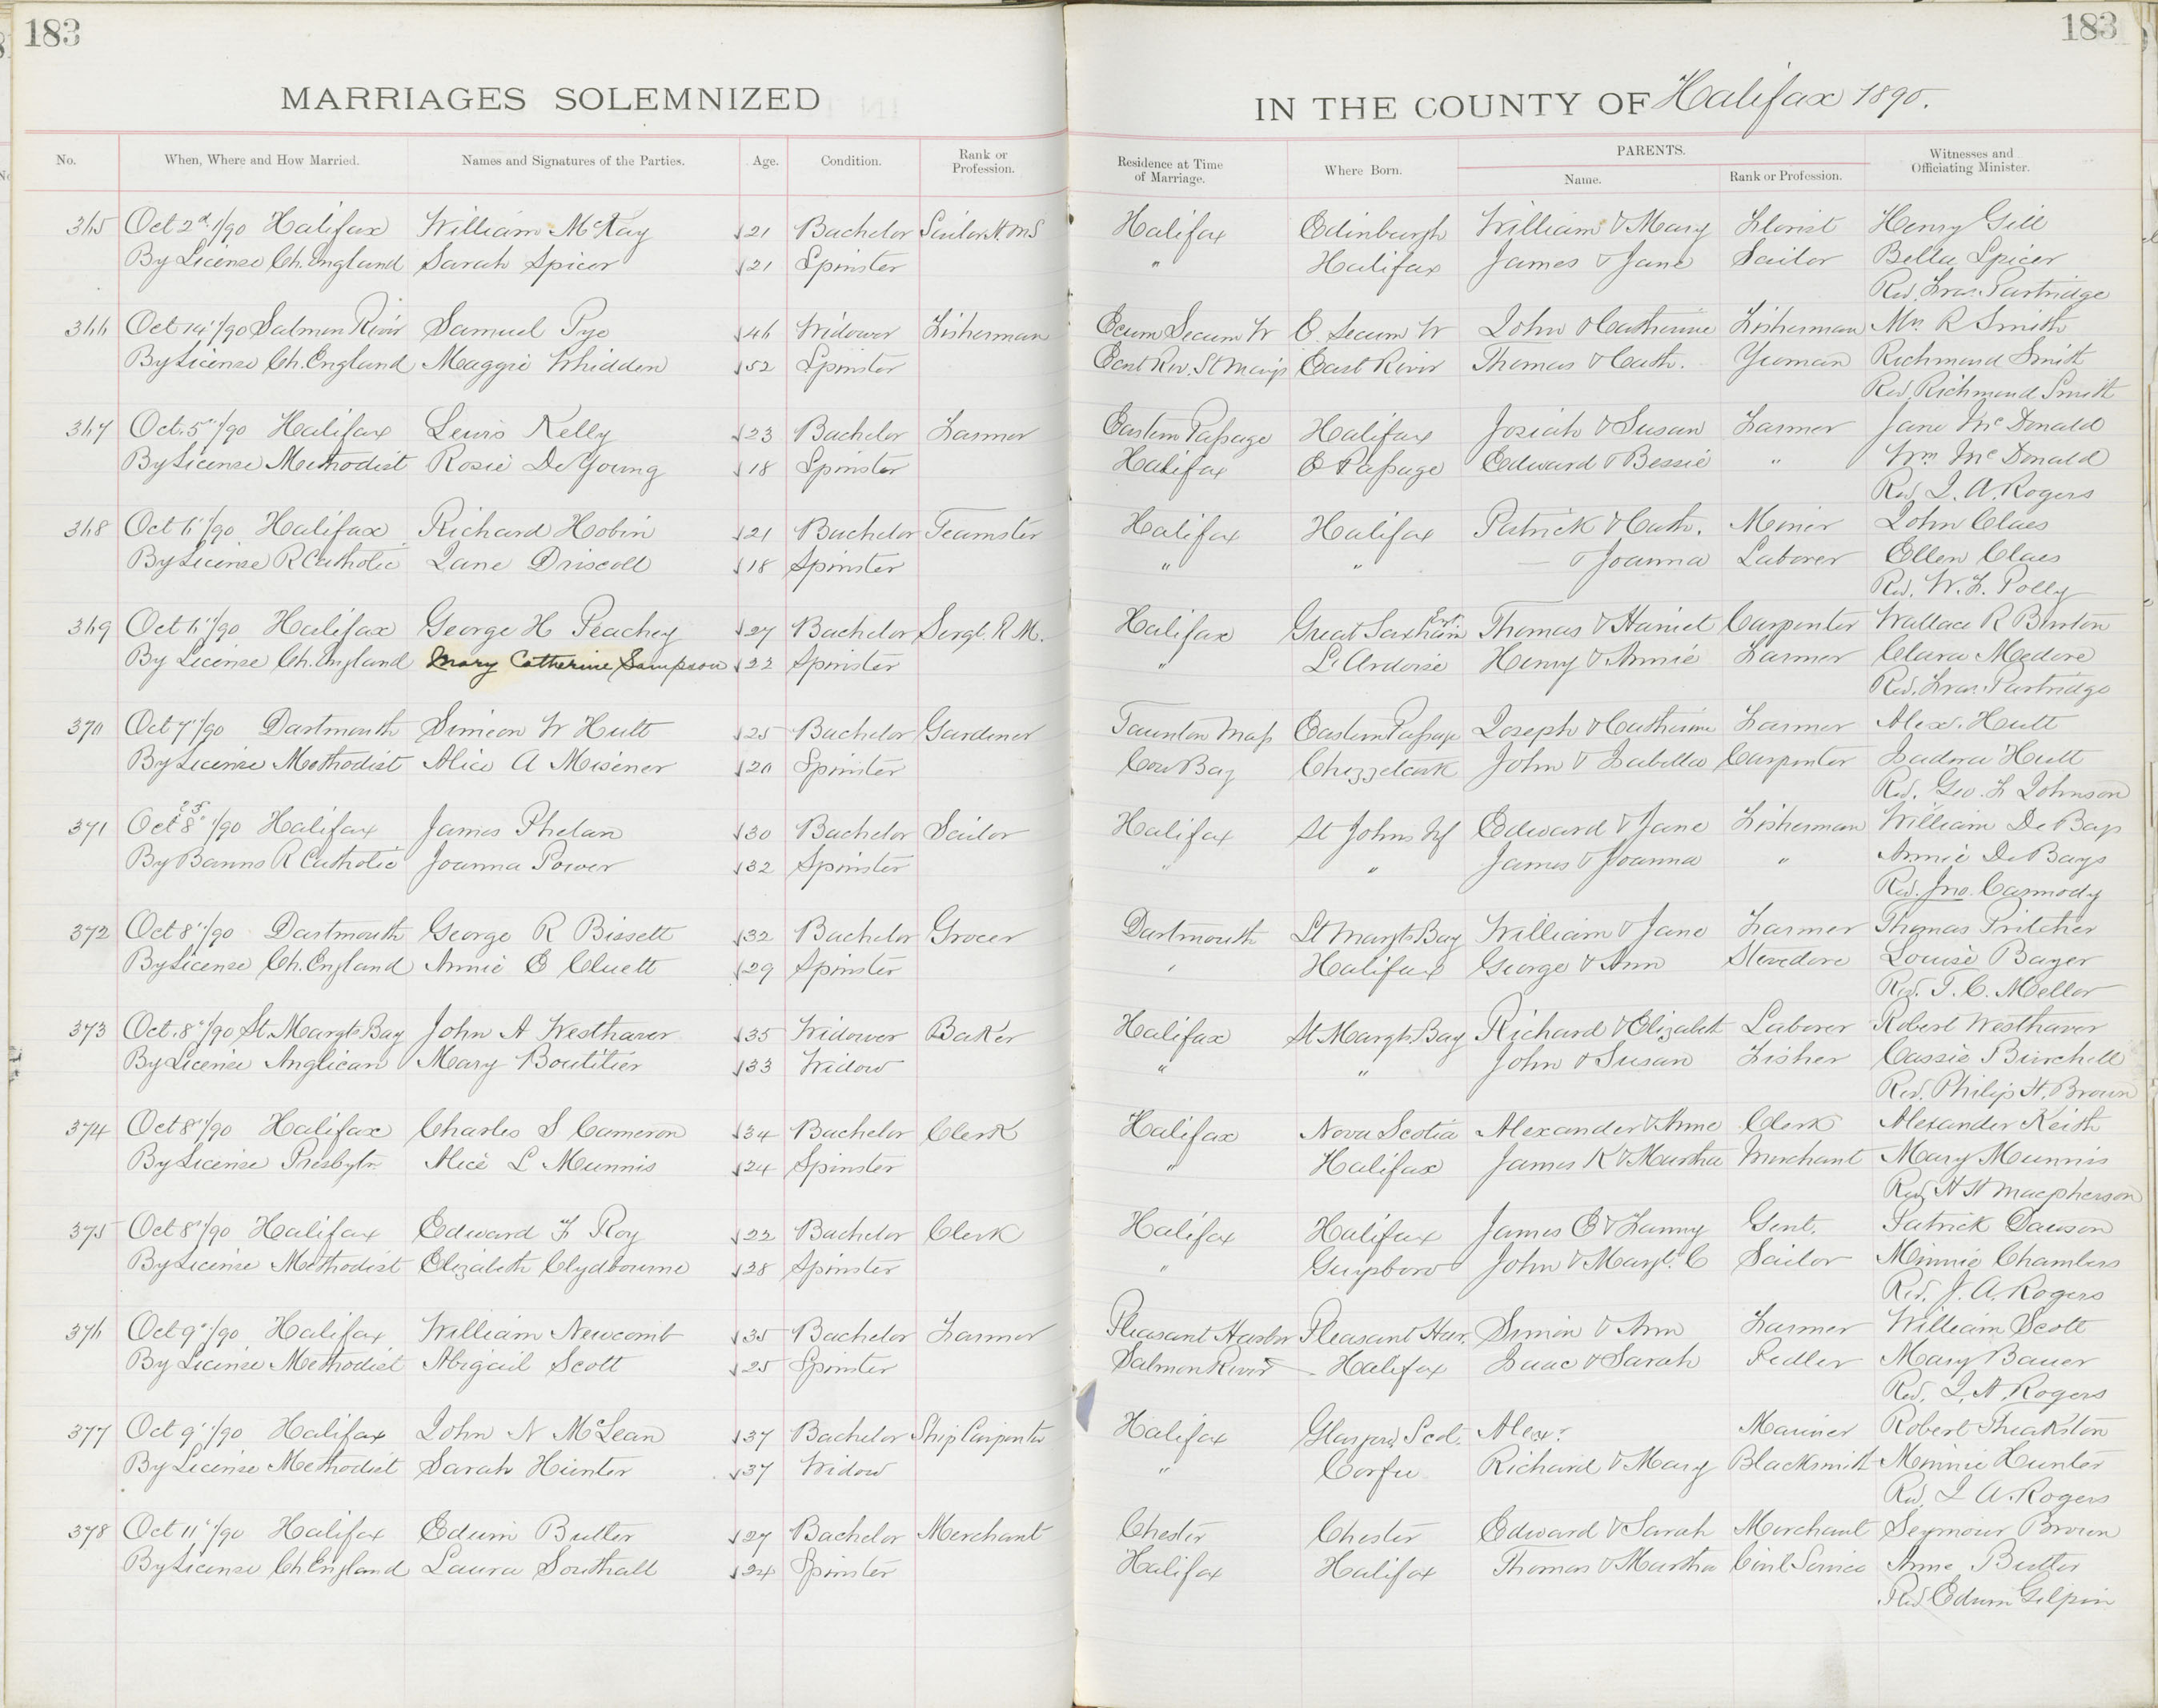 183
183
MARRIAGES SOLEMNIZED
IN THE COUNTY OF Halifax 1890.
No. When, Where and How Married. Names and Signatures of the Parties. Age. Condition. Rank or Profession. Residence at Time of Marriage. Where Born. PARENTS. Name. Rank or Profession. Witnesses and Officiating Minister.
365 Oct 2d/90 Halifax William McKay 21 Bachelor Sailor H.M.S Halifax Edinburgh William & Mary Florist Henry Gill
By License Ch. England Sarah Spicer 21 Spinster " Halifax James & Jane Sailor Bella Spicer
Rev. Fras. Partridge
366 Oct 14"/90 Salmon River Samuel Pye 46 Widower Fisherman Ecum Secum W E. Secum W John & Catherine Fisherman Mrs R Smith
By License Ch. England Maggie Whidden 52 Spinster East Riv. St Marys East River Thomas & Cath. Yeoman Richmond Smith
Rev. Richmond Smith
367 Oct. 5"/90 Halifax Lewis Kelly 23 Bachelor Farmer Eastern Passage Halifax Josiah & Susan Farmer Jane McDonald
By License Methodist Rosie DeYoung 18 Spinster Halifax E Passage Edward & Bessie " Wm McDonald
Rev. J. A. Rogers
368 Oct 6"/90 Halifax Richard Hobin 21 Bachelor Teamster Halifax Halifax Patrick & Cath. Miner John Claes
By License R Catholic Jane Driscoll 18 Spinster " " — & Joanna Laborer Ellen Claes
Rev. W. F. Polly
369 Oct 6"/90 Halifax George H Peachey 27 Bachelor Sergt. R M. Halifax Great Saxham Eng. Thomas & Harriet Carpenter Wallace R Blinton
By License Ch. England Mary Catherine Sampson 22 Spinster " L'Ardoise Henry & Annie Farmer Clara Medore
Rev. Fras. Partridge
370 Oct 7"/90 Dartmouth Simeon W Hutt 25 Bachelor Gardener Taunton Mass Eastern Passage Joseph & Catherine Farmer Alex. Hutt
By License Methodist Alice A Misener 20 Spinster Cow Bay Chezzetcook John & Isabella Carpenter Isadora Hutt
Rev. Geo. F Johnson
371 Oct 8" 25 /90 Halifax James Phelan 30 Bachelor Sailor Halifax St Johns Nf Edward & Jane Fisherman William De Bays
By Banns R Catholic Joanna Power 32 Spinster " " James & Joanna " Annie De Bays
Rev. Jno. Carmody
372 Oct 8"/90 Dartmouth George R Bissett 32 Bachelor Grocer Dartmouth St Margts Bay William & Jane Farmer Thomas Pritcher
By License Ch. England Annie E Cluett 29 Spinster " Halifax George & Ann Stevedore Louise Bayer
Rev. T. C. Mellor
373 Oct. 8"/90 St. Margts Bay John A Westhaver 35 Widower Baker Halifax St Margts Bay Richard & Elizabeth Laborer Robert Westhaver
By License Anglican Mary Boutilier 33 Widow " " John & Susan Fisher Cassie Burchell
Rev. Philip H. Brown
374 Oct 8"/90 Halifax Charles S Cameron 34 Bachelor Clerk Halifax Nova Scotia Alexander & Anne Clerk Alexander Keith
By License Presbytn Alice L Munnis 24 Spinster " Halifax James K & Martha Merchant Mary Munnis
Rev H H Macpherson
375 Oct 8"/90 Halifax Edward F Roy 22 Bachelor Clerk Halifax Halifax James E & Fanny Gent. Patrick Dawson
By License Methodist Elizabeth Clydbourne 28 Spinster " Guysboro John & Margt. C Sailor Minnie Chambers
Rev. J. A. Rogers
376 Oct 9"/90 Halifax William Newcomb 35 Bachelor Farmer Pleasant Harbor Pleasant Har. Simon & Ann Farmer William Scott
By License Methodist Abigail Scott 25 Spinster Salmon River Halifax Isaac & Sarah Pedler Mary Bauer
Rev. J. A. Rogers
377 Oct 9"/90 Halifax John N McLean 37 Bachelor Ship Carpenter Halifax Glasgow Scot. Alexr. Mariner Robert Theakston
By License Methodist Sarah Hunter 37 Widow " Corfu Richard & Mary Blacksmith Minnie Hunter
Rev. J A. Rogers
378 Oct 11"/90 Halifax Edwin Butler 27 Bachelor Merchant Chester Chester Edward & Sarah Merchant Seymour Brown
By License Ch England Laura Southall 24 Spinster Halifax Halifax Thomas & Martha Civil Service Anne Butler
Rev Edwin Gilpin